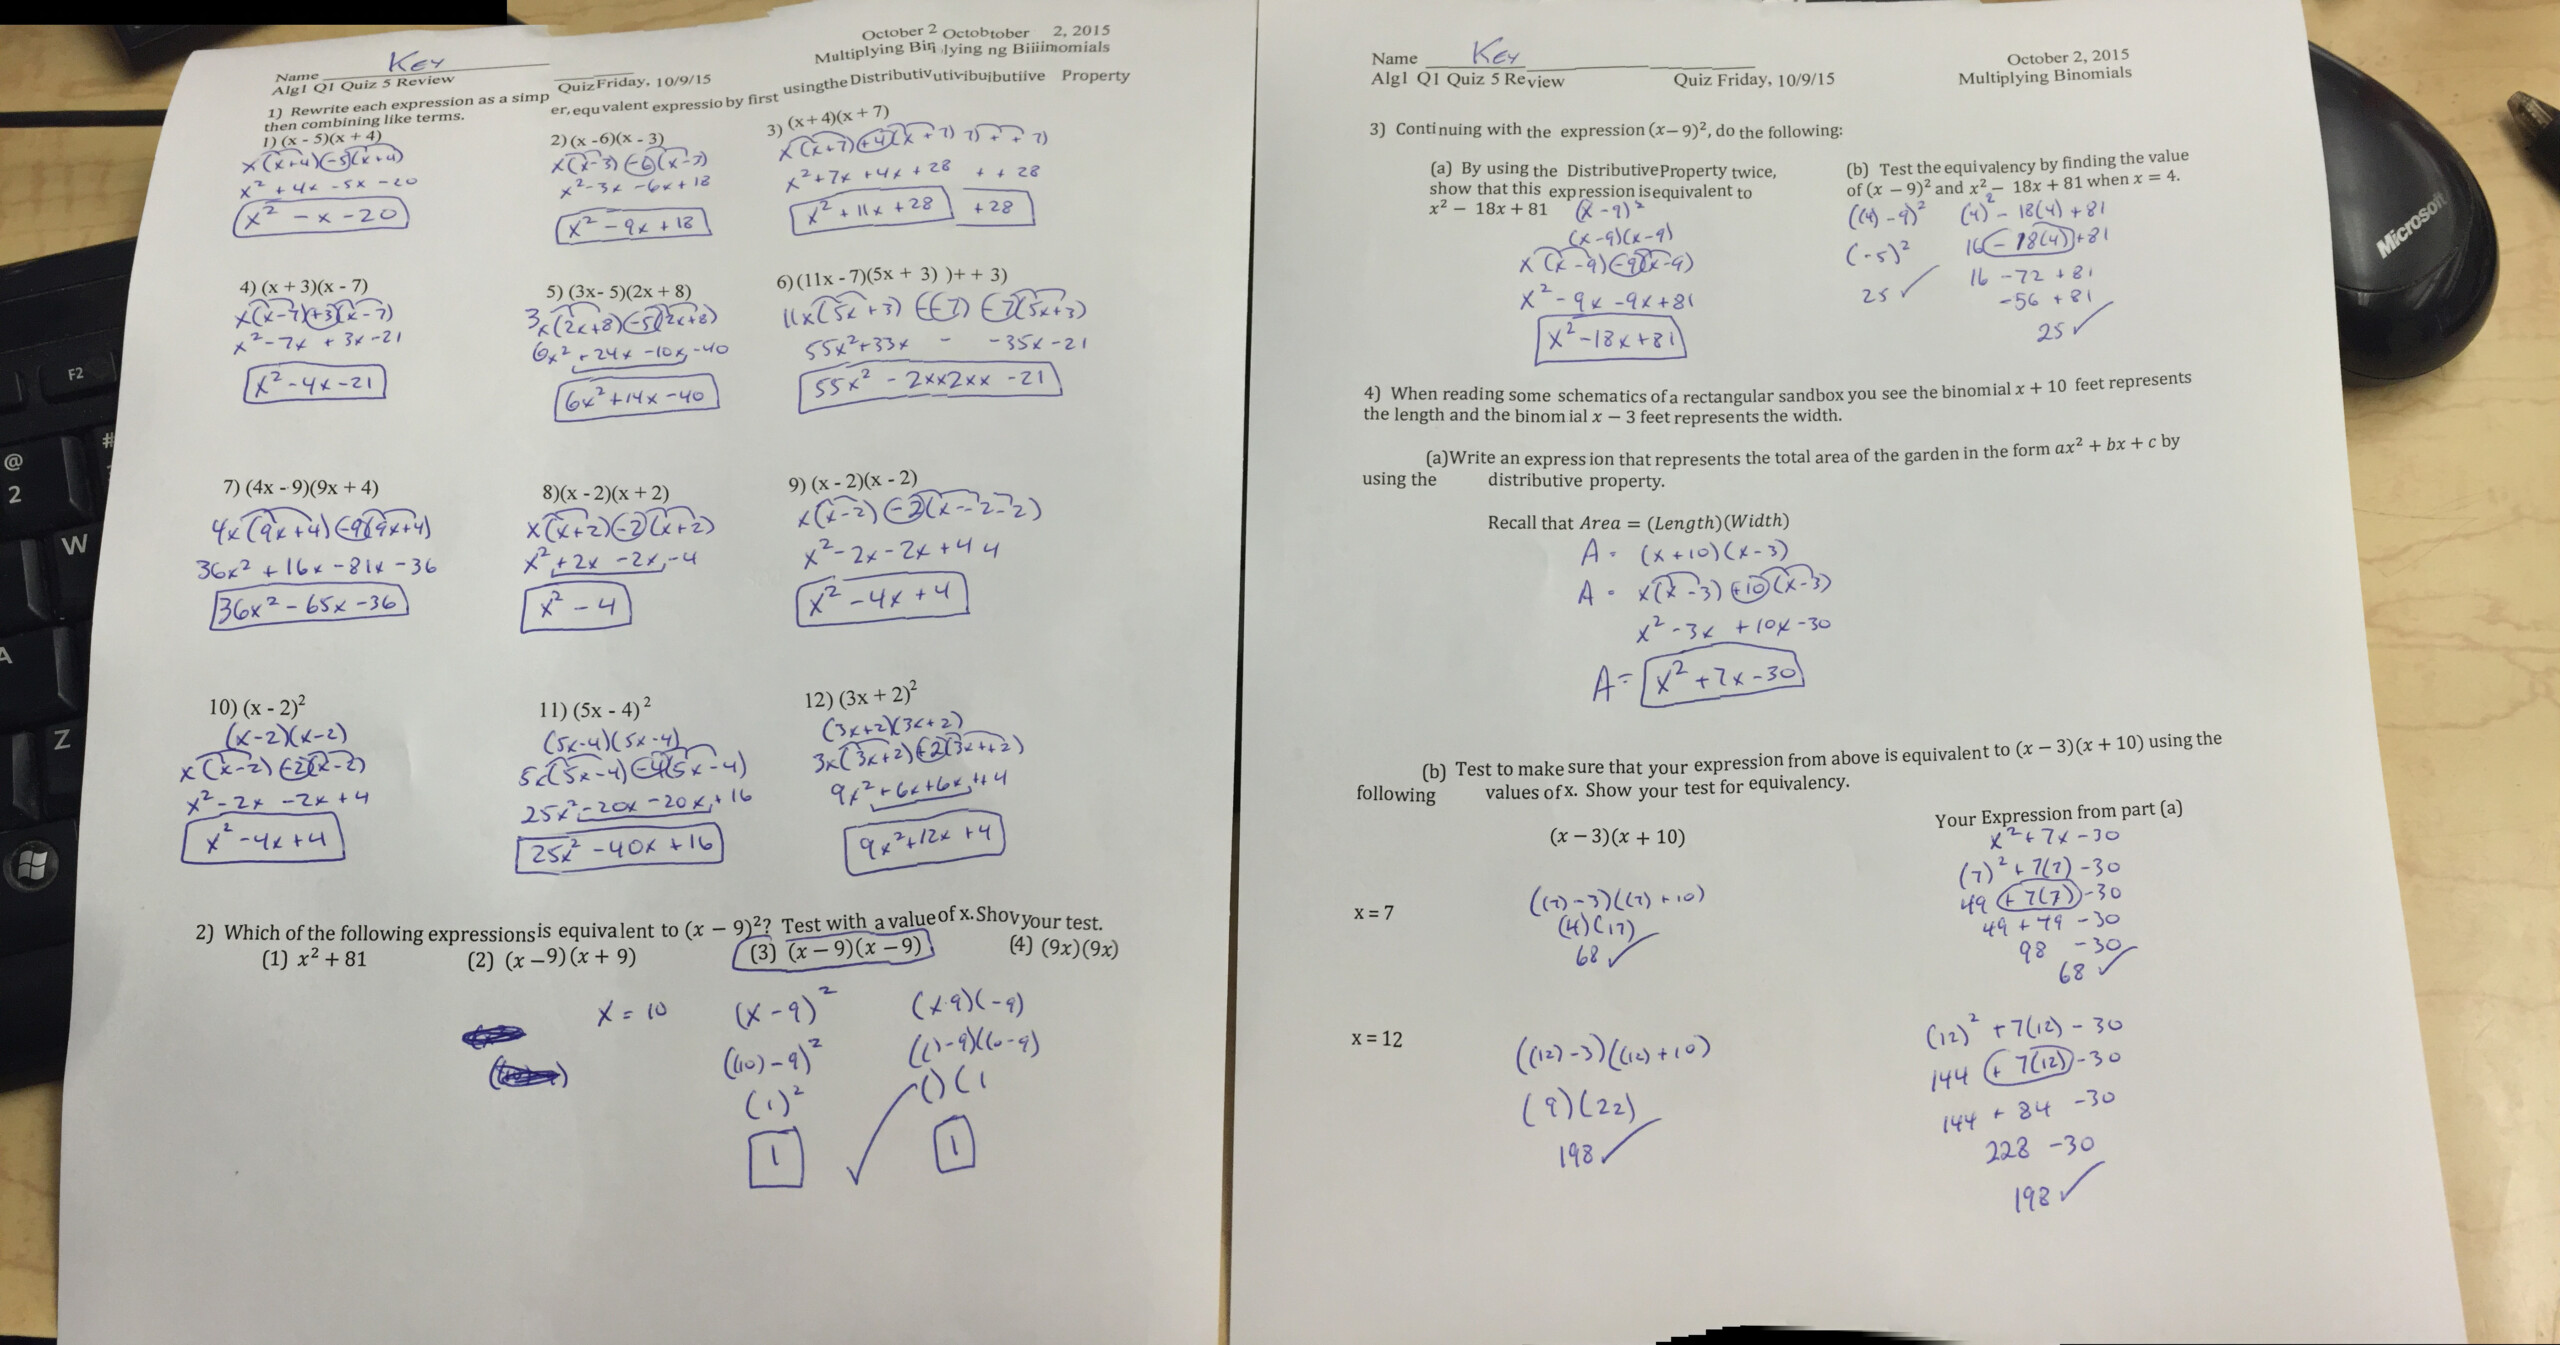 Name Key
Alg1 Q1 Quiz 5 Review
Quiz Friday, 10/9/15
October 2 Octobtober 2, 2015
Multiplying Bin lying ng Biiiimomials
1) Rewrite each expression as a simp er, equ valent expressio by first using the Distributiv utivibuibutiive Property
then combining like terms.
1) (x - 5)(x + 4)
x(x+4)(-5)(x+4)
x² + 4x - 5x - 20
x² - x - 20
2) (x -6)(x - 3)
x(x-3)(-6)(x-7)
x² - 3x - 6x + 18
x² - 9x + 18
3) (x + 4)(x + 7)
x(x+7)+4(x + 7) 7) + + 7)
x² + 7x + 4x + 28 + + 28
x² + 11x + 28 + 28
4) (x + 3)(x - 7)
x(x-7)(+3)(x-7)
x² - 7x + 3x - 21
x² - 4x - 21
5) (3x- 5)(2x + 8)
3x(2x+8)(-5)(2x+8)
6x² + 24x - 10x - 40
6x² + 14x - 40
6) (11x - 7)(5x + 3) )+ + 3)
11x(5x+3) (-(-7) (-7)(5x+3)
55x² + 33x - - 35x - 21
55x² - 2xx2xx - 21
7) (4x - 9)(9x + 4)
4x(9x+4)(-9)(9x+4)
36x² + 16x - 81x - 36
36x² - 65x - 36
8)(x - 2)(x + 2)
x(x+2)(-2)(x+2)
x² + 2x - 2x - 4
x² - 4
9) (x - 2)(x - 2)
x(x-2) (-2)(x--2-2)
x² - 2x - 2x + 4 4
x² - 4x + 4
10) (x - 2)²
(x-2)(x-2)
x(x-2)(-2)(x-2)
x² - 2x - 2x + 4
x² - 4x + 4
11) (5x - 4)²
(5x-4)(5x-4)
5x(5x-4)(-4)(5x-4)
25x² - 20x - 20x + 16
25x² - 40x + 16
12) (3x + 2)²
(3x+2)(3x+2)
3x(3x+2)(+2)(3x++2)
9x² + 6x + 6x + + 4
9x² + 12x + 4
2) Which of the following expressions is equivalent to (x − 9)²? Test with a value of x. Shov your test.
(1) x² + 81 (2) (x − 9)(x + 9) (3) (x − 9)(x − 9) (4) (9x)(9x)
x = 10 (x - 9)² (x-9)(-9)
((10) - 9)² (()-9)((0-9)
(1)² ()(1
1 1
Name Key
Alg1 Q1 Quiz 5 Review
Quiz Friday, 10/9/15
October 2, 2015
Multiplying Binomials
3) Continuing with the expression (x − 9)², do the following:
(a) By using the Distributive Property twice,
show that this expression is equivalent to
x² − 18x + 81 (x - 9)²
(x-9)(x-9)
x(x-9)(-9)(x-9)
x² - 9x - 9x + 81
x² - 18x + 81
(b) Test the equivalency by finding the value
of (x − 9)² and x² − 18x + 81 when x = 4.
((4) - 9)² (4)² - 18(4) + 81
(-5)² 16 - 18(4) + 81
25 ✓ 16 - 72 + 81
-56 + 81
25 ✓
4) When reading some schematics of a rectangular sandbox you see the binomial x + 10 feet represents
the length and the binom ial x − 3 feet represents the width.
(a)Write an express ion that represents the total area of the garden in the form ax² + bx + c by
using the distributive property.
Recall that Area = (Length)(Width)
A = (x+10)(x-3)
A = x(x-3)(+10)(x-3)
x² - 3x + 10x - 30
A = x² + 7x - 30
(b) Test to make sure that your expression from above is equivalent to (x − 3)(x + 10) using the
following values of x. Show your test for equivalency.
(x − 3)(x + 10) Your Expression from part (a)
x² + 7x - 30
x = 7
((7)-3)((7)+10)
(4)(17)
68 ✓
(7)² + 7(7) - 30
49 + 7(7) - 30
49 + 49 - 30
98 - 30
68 ✓
x = 12
((12)-3)((12)+10)
(9)(22)
198 ✓
(12)² + 7(12) - 30
144 + 7(12) - 30
144 + 84 - 30
228 - 30
198 ✓
Microsoft
F2
#
@
2
W
A
Z